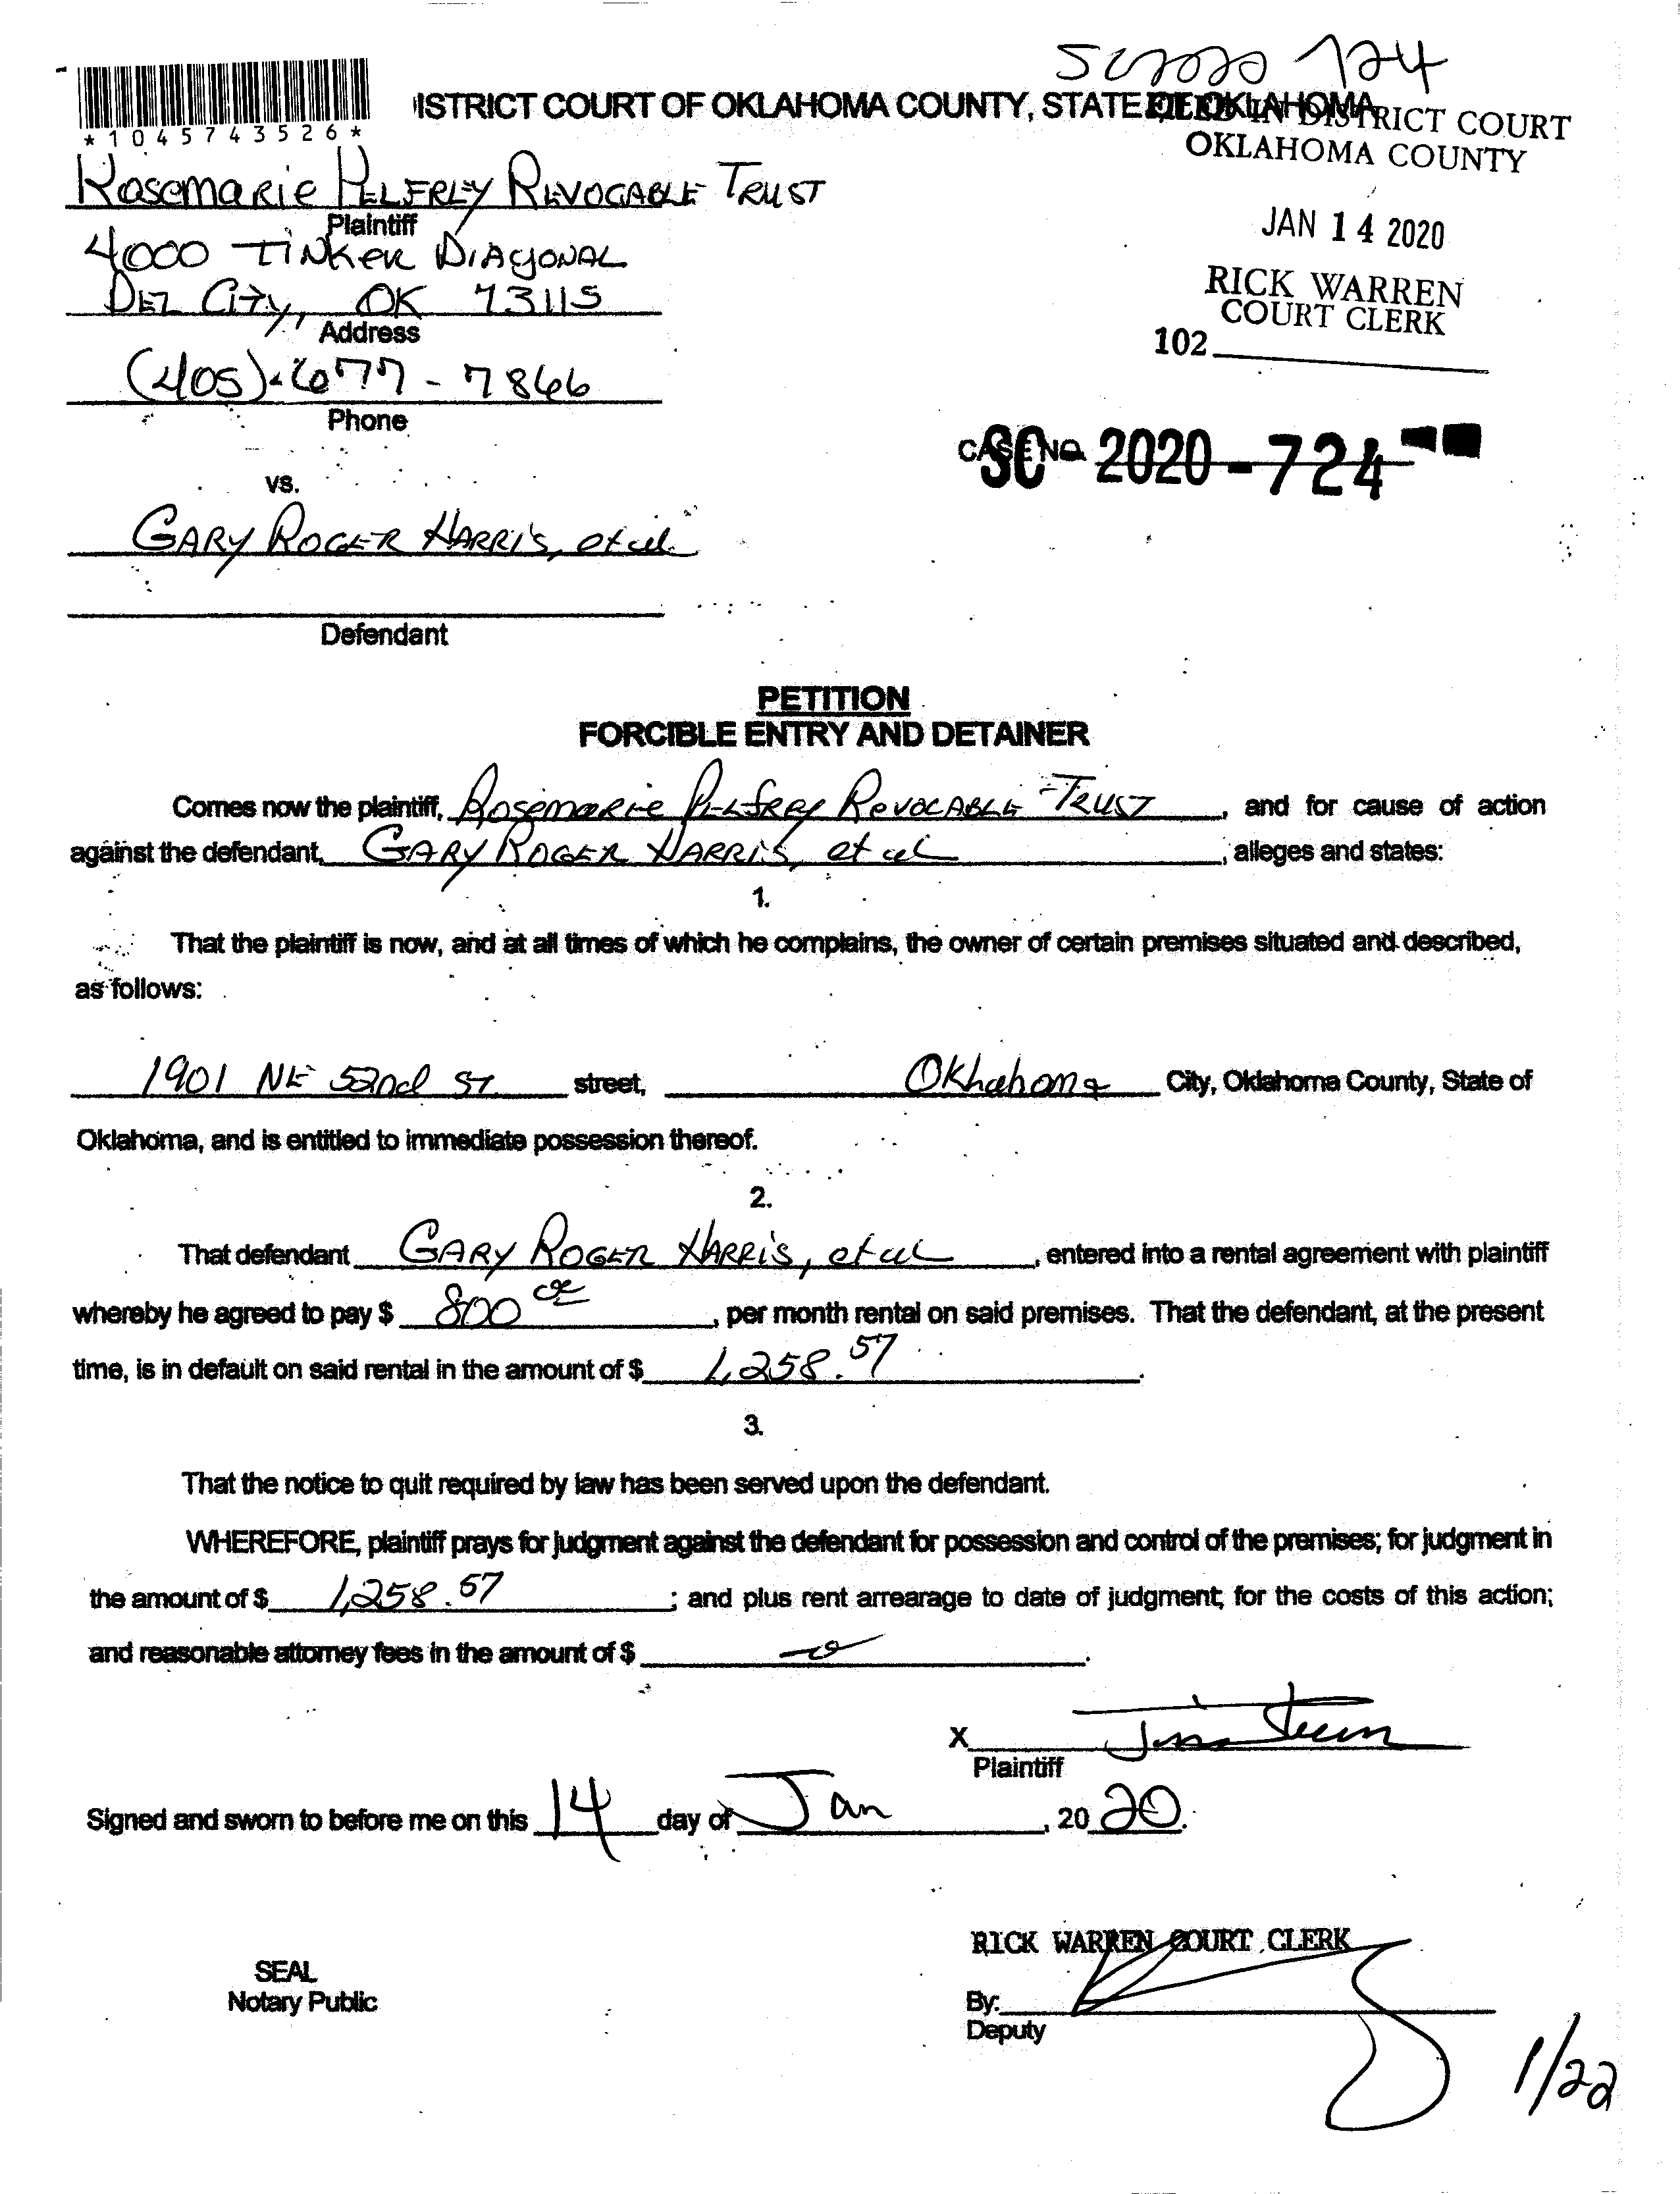 SC2020 724
*1045743526*
ISTRICT COURT OF OKLAHOMA COUNTY, STATE OF OKLAHOMA
FILED IN DISTRICT COURT
OKLAHOMA COUNTY
JAN 14 2020
RICK WARREN
COURT CLERK
102
Rosemarie Pelfrey Revocable Trust
Plaintiff
4000 Tinker Diagonal
Del City, OK 73115
Address
(405)-677-7866
Phone
CASE NO.
SC 2020-724
vs.
Gary Roger Harris, et al
Defendant
PETITION
FORCIBLE ENTRY AND DETAINER
Comes now the plaintiff, Rosemarie Pelfrey Revocable Trust, and for cause of action
against the defendant, Gary Roger Harris, et al, alleges and states:
1.
That the plaintiff is now, and at all times of which he complains, the owner of certain premises situated and described,
as follows:
1901 NE 52nd St. street, Oklahoma City, Oklahoma County, State of
Oklahoma, and is entitled to immediate possession thereof.
2.
That defendant Gary Roger Harris, et al, entered into a rental agreement with plaintiff
whereby he agreed to pay $ 800, per month rental on said premises. That the defendant, at the present
time, is in default on said rental in the amount of $ 1,258.57.
3.
That the notice to quit required by law has been served upon the defendant.
WHEREFORE, plaintiff prays for judgment against the defendant for possession and control of the premises; for judgment in
the amount of $ 1,258.57; and plus rent arrearage to date of judgment; for the costs of this action;
and reasonable attorney fees in the amount of $ .
X
Plaintiff
Signed and sworn to before me on this 14 day of Jan, 20 20.
RICK WARREN COURT CLERK
SEAL
Notary Public
By:
Deputy
1/22